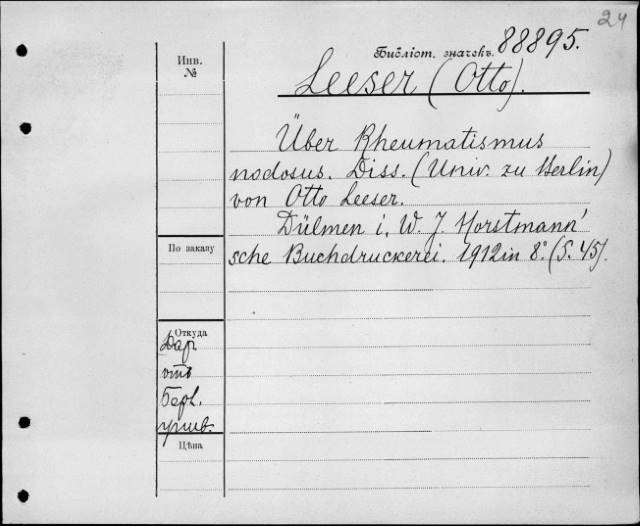 24
Инв.
№
Библіот. значекъ. 88895.
Leeser (Otto).
Über Rheumatismus
nodosus. Diss. (Univ. zu Berlin)
von Otto Leeser.
Dülmen i. W. J. Horstmann'
sche Buchdruckerei. 1912 in 8° (S. 45).
По заказу
Откуда
Дар.
отъ
Берл.
унив.
Цѣна